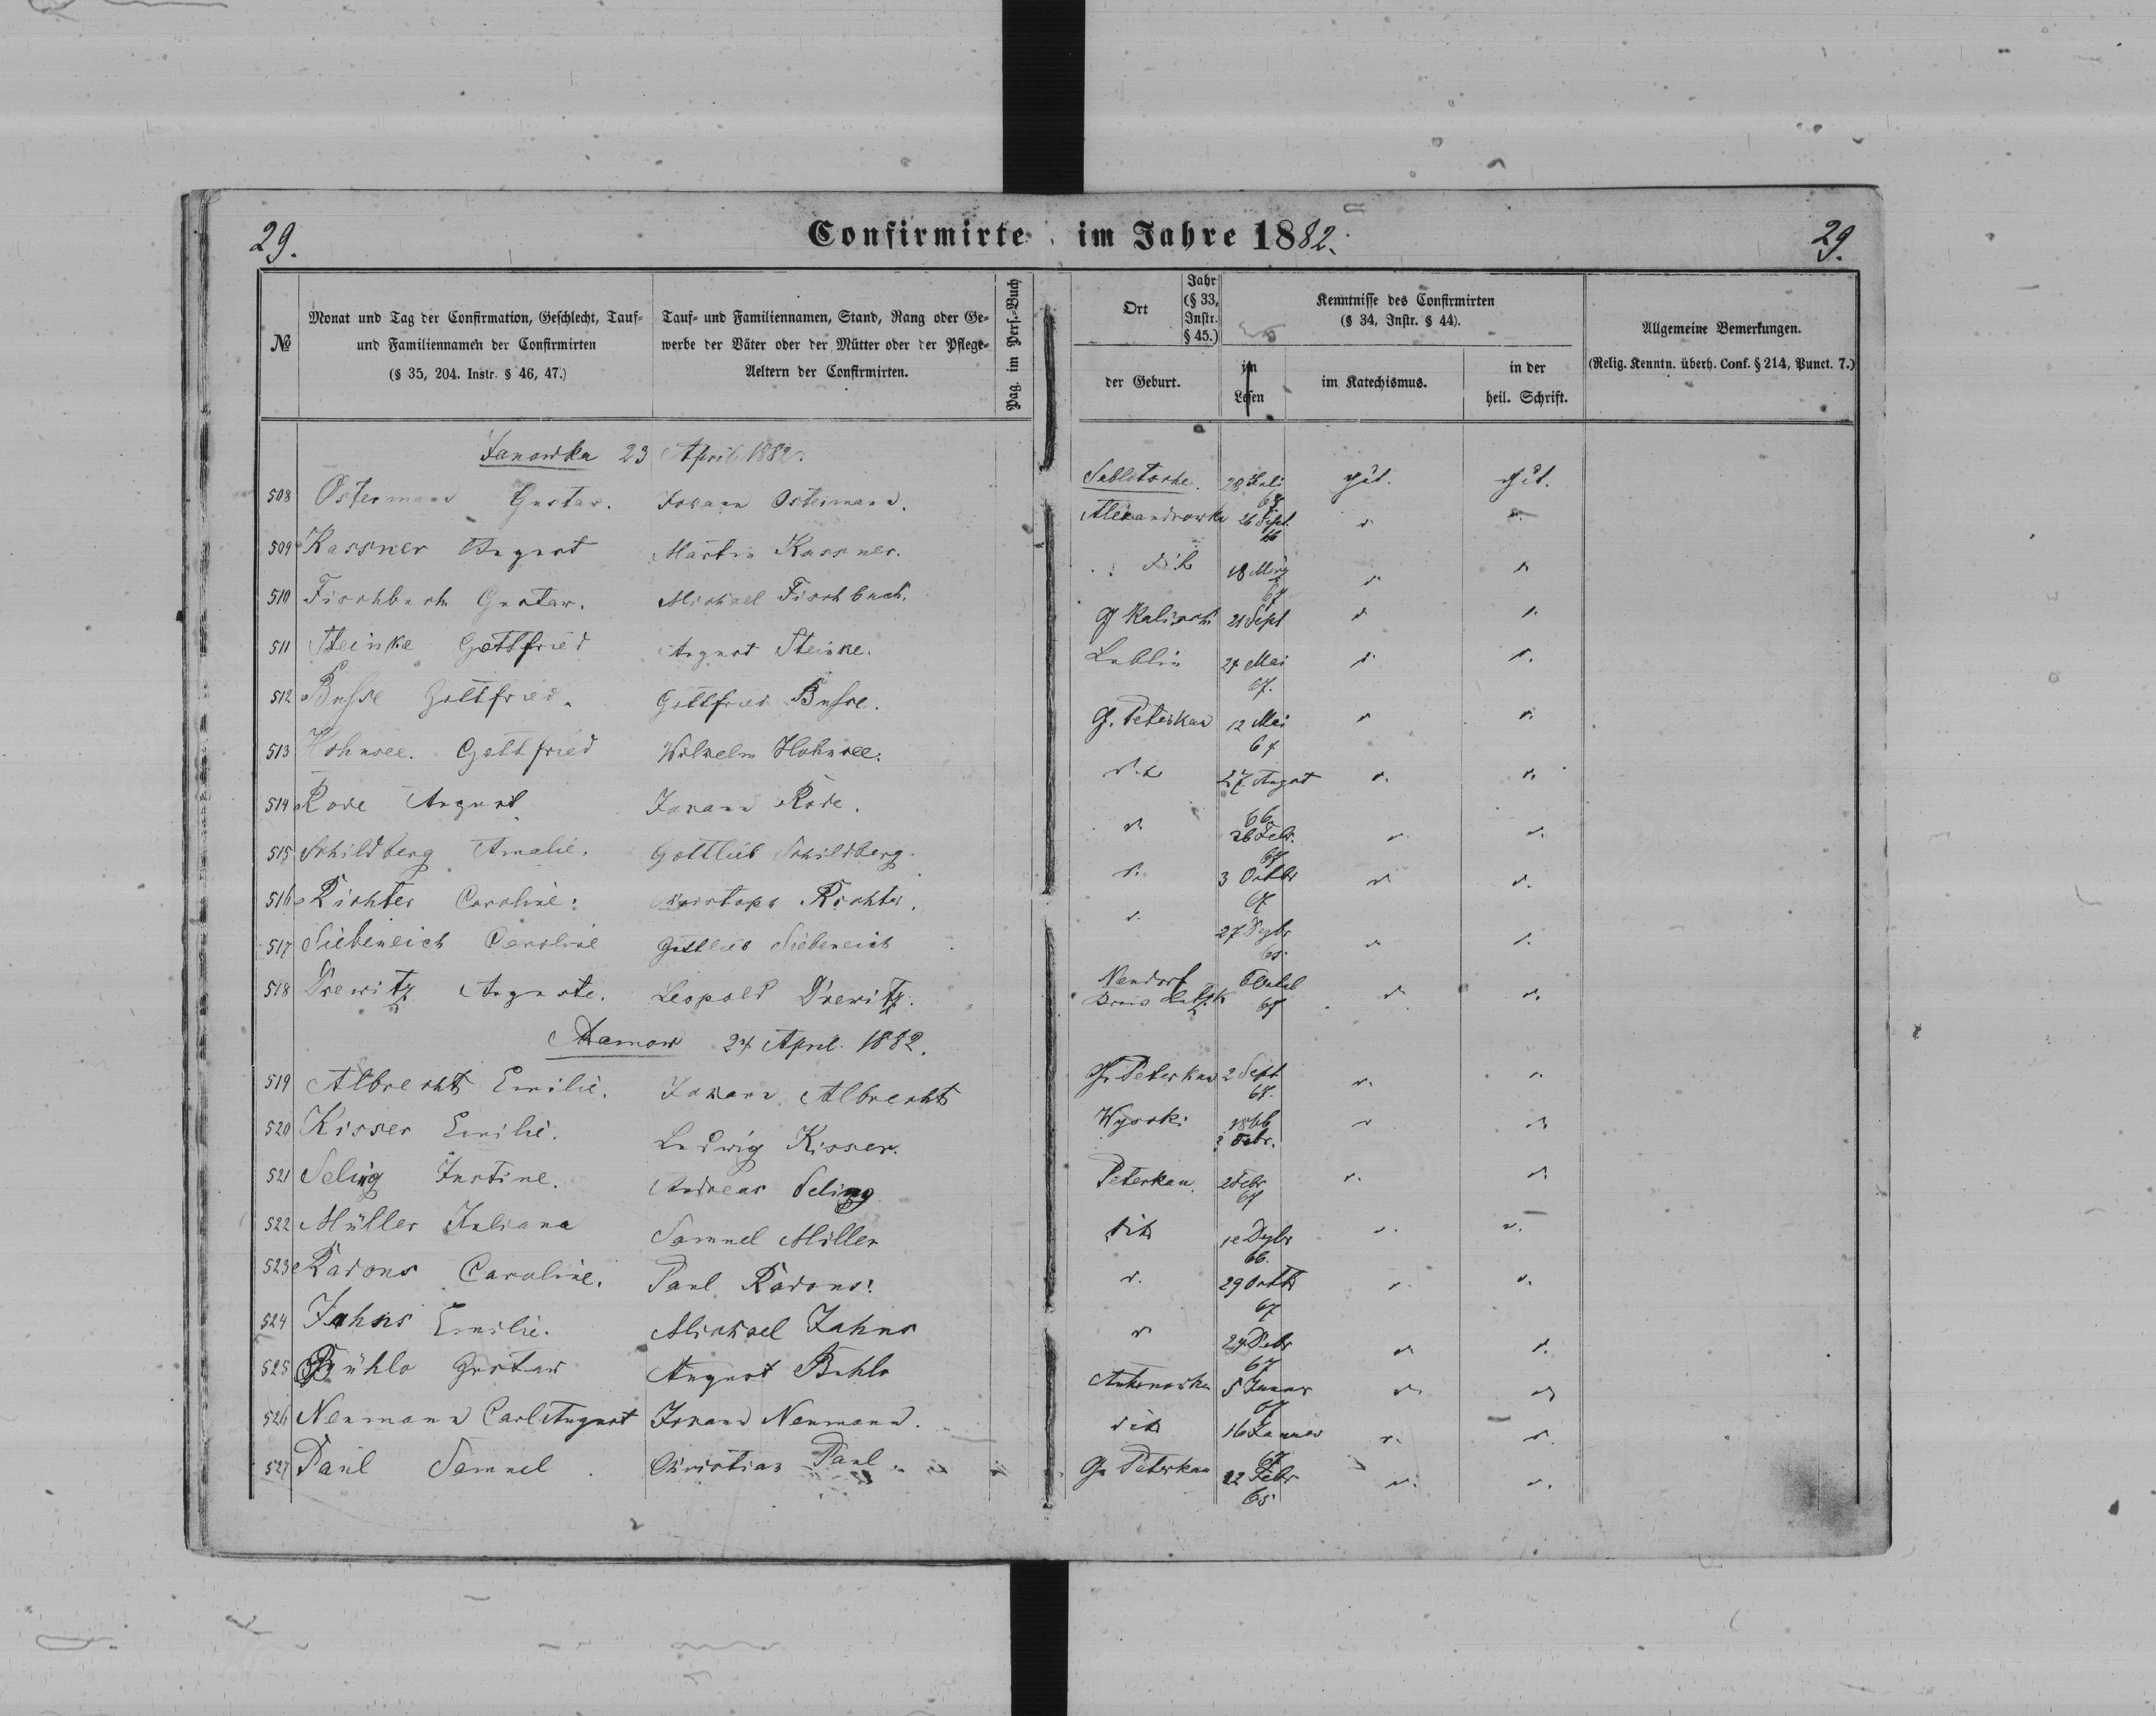 29. Confirmirte im Jahre 1882. 29.
№ Monat und Tag der Confirmation, Geschlecht, Tauf- und Familiennamen der Confirmirten (§ 35, 204. Instr. § 46, 47.) Tauf- und Familiennamen, Stand, Rang oder Gewerbe der Väter oder der Mütter oder der Pflege-Aeltern der Confirmirten. Pag. im Pers.-Buch Ort der Geburt. Jahr (§ 33, Instr. § 45.) Kenntnisse des Confirmirten (§ 34, Instr. § 44). im Lesen im Katechismus. in der heil. Schrift. Allgemeine Bemerkungen. (Relig. Kenntn. überh. Conf. § 214, Punct. 7.)
Janowka 23 April 1882.
508 Ostermann Gustav. Johann Ostermann. 29 Juli gut. gut.
509 Kassner August Martin Kassner. Alexandrowka 26 Sept. 66
510 Fischbuch Gustav. Michael Fischbuch. dito 18 März 67
511 Steinke Gottfried August Steinke. G Kalisch 21 Sept
512 Busse Gottfried. Gottfried Busse. Lublin 27 Mai 67.
513 Hohnsee. Gottfried Wilhelm Hohnsee. G. Peterkau 12 Mai 67
514 Rode August Johann Rode. 27 August 66
515 Schildberg Amalie. Gottlieb Schildberg. 26 Febr. 67
516 Richter Caroline. Christoph Richter. 3 Octbr 67
517 Siebeneich Caroline Gottlieb Siebeneich 27 Dezbr 65.
518 Drewitz Auguste. Leopold Drewitz. Neudorf Kreis Lutzk 67
24 April 1882.
519 Albrecht Emilie. Johann Albrecht G. Peterkau 2 Sept 67.
520 Kisser Emilie. Ludwig Kisser. Wysoki 1866 Febr.
521 Seling Justine. Andreas Seling Peterkau. 2 Febr 67
522 Müller Juliana Samuel Miller dito Dezbr 66.
523 Radons Caroline. Paul Radons. 29 Octb 67
524 Jahns Emilie. Michael Jahns 24 67
525 Bühlo Gustav August Buhlo Antonowka 5 Januar 67
526 Neumann Carl August Johann Neumann. dito 16 Januar 67
527 Paul Samuel. Christian Paul. G. Peterkau 22 Febr 65